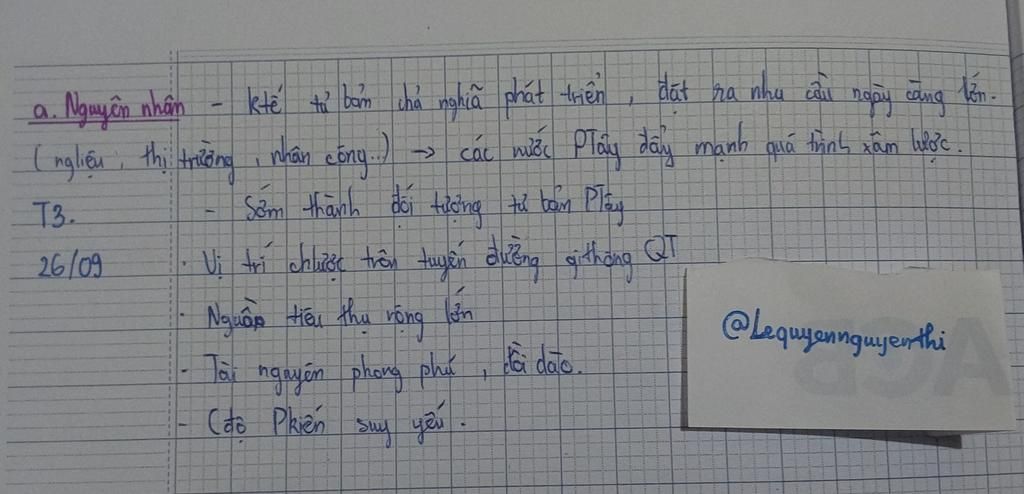 a. Nguyên nhân - ktế tư bản chủ nghĩa phát triển, đặt ra nhu cầu ngày càng lớn.
(ngliệu, thị trường, nhân công..) → các nước PTây đẩy mạnh quá trình xâm lược.
T3. - Sớm thành đối tượng tư bản PTây
26/09 · Vị trí chlược trên tuyến đường githông QT
· Nguồn tiêu thụ rộng lớn
- Tài nguyên phong phú, dồi dào.
- Cđộ Pkiến suy yếu.
@Lequyennguyenthi
ACB